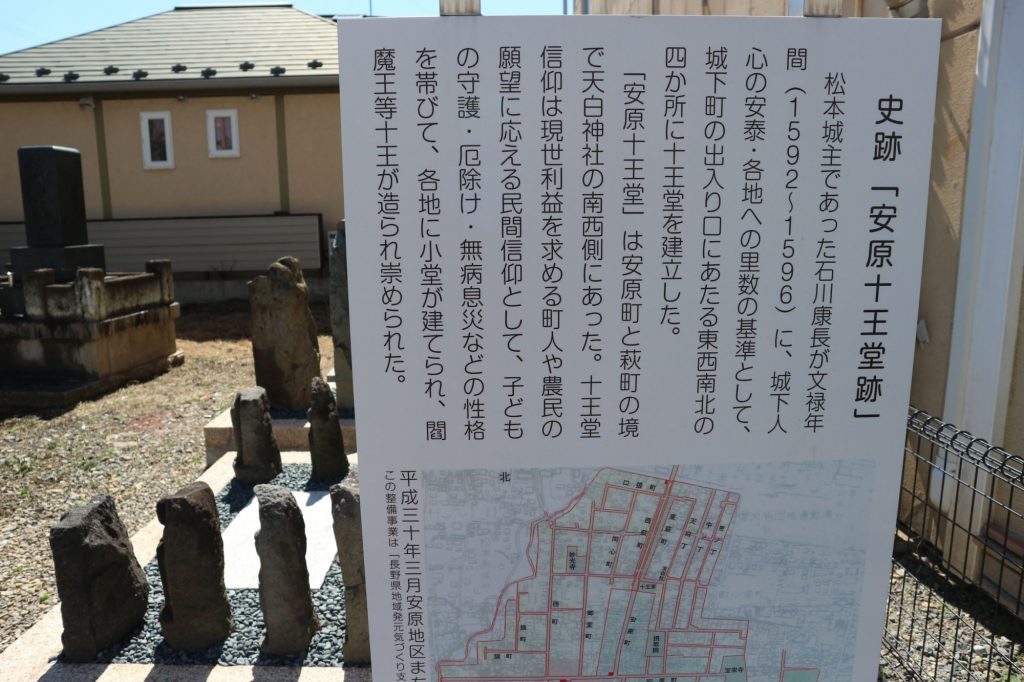 史跡「安原十王堂跡」
松本城主であった石川康長が文禄年
間(1592〜1596)に、城下人
心の安泰・各地への里数の基準として、
城下町の出入り口にあたる東西南北の
四か所に十王堂を建立した。
「安原十王堂」は安原町と萩町の境
で天白神社の南西側にあった。十王堂
信仰は現世利益を求める町人や農民の
願望に応える民間信仰として、子ども
の守護・厄除け・無病息災などの性格
を帯びて、各地に小堂が建てられ、閻
魔王等十王が造られ崇められた。
平成三十年三月安原地区まち
この整備事業は「長野県地域発元気づくり支
北
西町
安原町
十王堂
宝栄寺